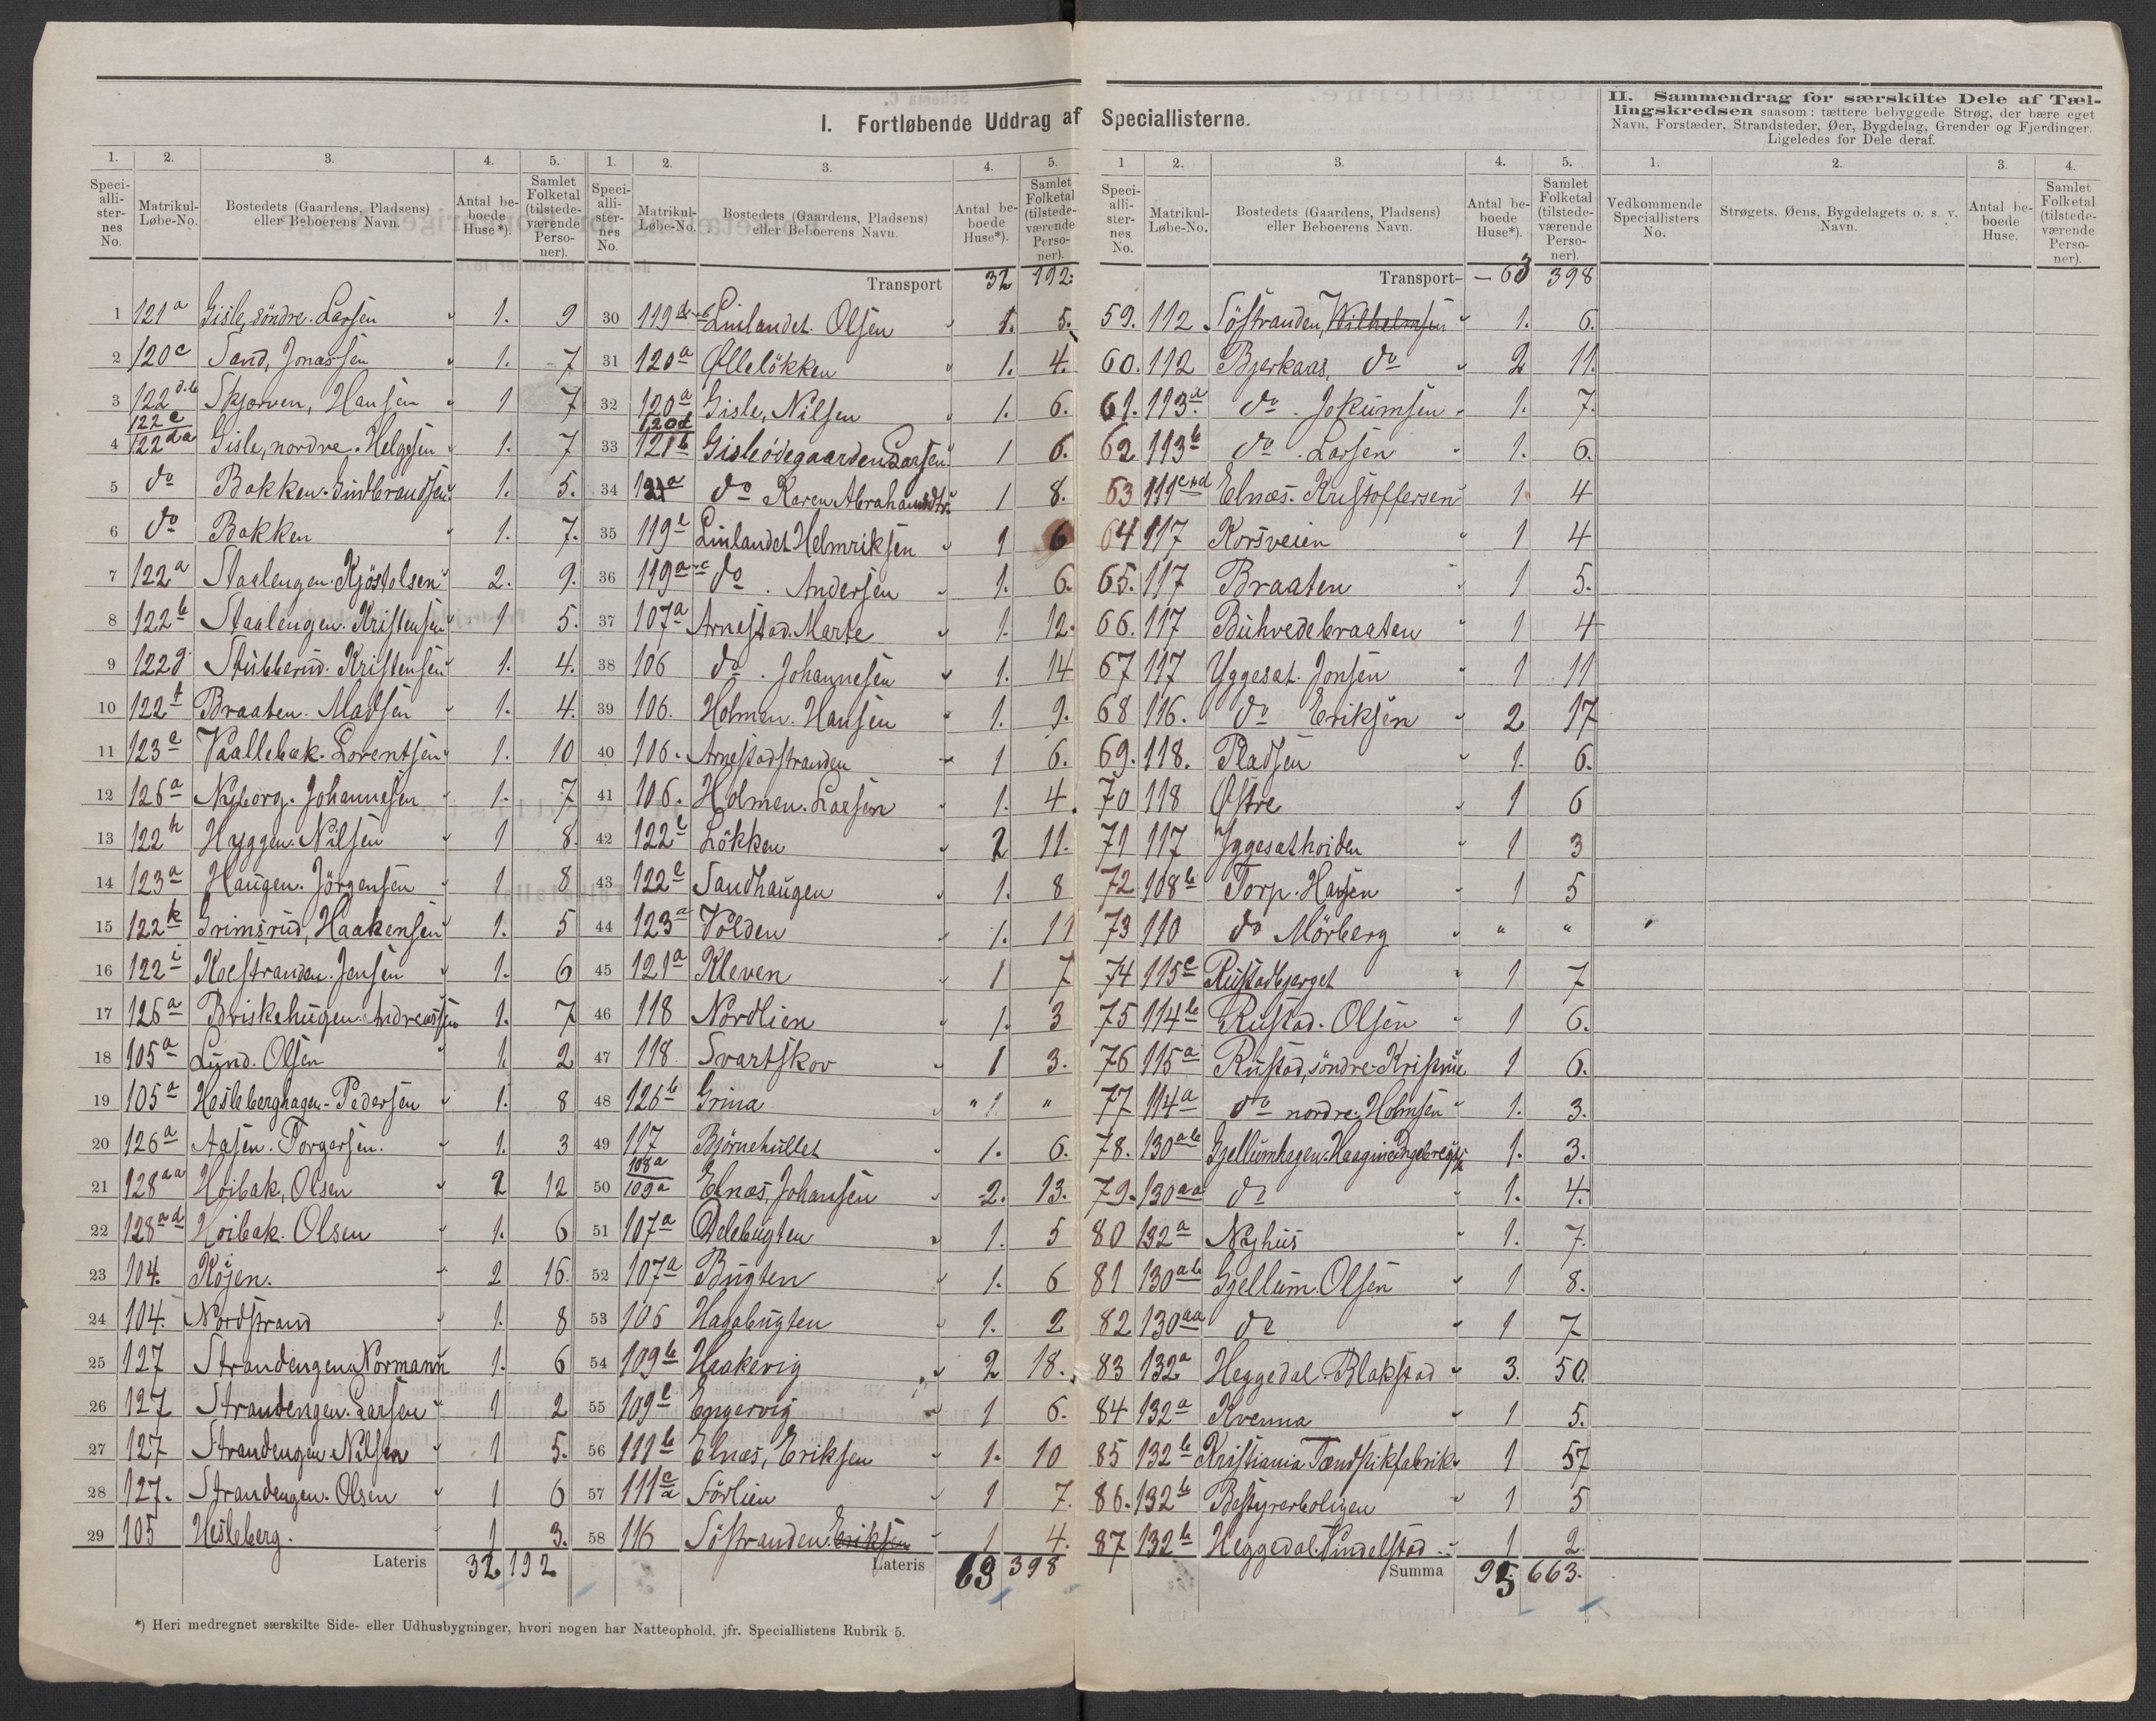 I. Fortløbende Uddrag af Speciallisterne.
II. Sammendrag for særskilte Dele af Tæl-
lingskredsen saasom: tættere bebyggede Strøg, der bære eget
Navn, Forstæder, Strandsteder, Øer, Bygdelag, Grender og Fjerdinger.
Ligeledes for Dele deraf.
1. 2. 3. 4. 5.
Speci-alli-ster-nes No. Matrikul-Løbe-No. Bostedets (Gaardens, Pladsens) eller Beboerens Navn. Antal be-boede Huse*). Samlet Folketal (tilstede-værende Perso-ner).
1 121a Gisle, söndre. Larsen 1. 9
2 120c Sand, Jonassen 1. 7
3 122d.b Skjorven, Hansen 1 7
4 122c 122da Gisle, nordre. Helgesen 1. 7
5 do Bakken. Gudbrandsen 1. 5.
6 do Bakken 1. 7.
7 122a Staalengen. Kjöstolsen 2. 9.
8 122b Staalengen. Kristensen 1 5.
9 122g Stubberud. Kristensen 1. 4.
10 122f Braaten. Madsen 1. 4.
11 123c Vaallebæk. Lorentsen 1. 10
12 126a Nyborg. Johannesen 1. 7
13 122h Hyggen. Nilsen 1 8.
14 123a Haugen. Jörgensen 1 8
15 122k Grimsrud, Haakensen 1. 5
16 122i Koestranden. Jensen 1. 6
17 126a Briskehugen. Andreassen 1. 7
18 105a Lund. Olsen 1. 2
19 105a Hesleberghagen. Pedersen 1. 8
20 126a Aasen. Torgersen. 1. 3
21 128aa Höibak, Olsen 2 12
22 128ad Höibak. Olsen 1. 6
23 104. Köjen. 2 16.
24 104. Nordstrand 1. 8
25 127 Strandengen. Normann 1. 6
26 127 Strandengen. Larsen 1 2
27 127 Strandengen Nilsen 1 5.
28 127. Strandengen. Olsen 1 6
29 105 Hesleberg. 1 3.
Lateris 32 192
1. 2. 3. 4. 5.
Speci-alli-ster-nes No. Matrikul-Løbe-No. Bostedets (Gaardens, Pladsens) eller Beboerens Navn. Antal be-boede Huse*). Samlet Folketal (tilstede-værende Perso-ner).
Transport 32 192.
30 Linlandet. Olsen 1. 5.
31 120a Øllelökken 1. 4.
32 120a Gisle, Nilsen 1. 6.
33 120d 121b Gisleödegaarden Larsen 1 6.
34 121a do Karen Abrahamsdtr. 1 8.
35 119b Linlandet Helmriksen 1 6
36 do. Andersen 1. 6.
37 107a Arnestad. Marte 1. 12.
38 106 do. Johannesen 1. 14
39 106. Holmen. Hansen 1. 9.
40 106. Arnestadstranden 1 6.
41 106. Holmen. Larsen 1. 4.
42 122l Lökken 2 11.
43 122e Sandhaugen 1. 8
44 123a Volden 1. 11
45 121a Kleven 1 7
46 118 Nordlien 1. 3
47 118 Svartskov 1 3.
48 126b Grina " 1 "
49 117 Björnehullet 1. 6.
50 108a 109a Elnæs, Johansen 2. 13.
51 107a Delebugten 1. 5
52 107a Bugten 1. 6
53 106 Hagabugten 1. 2
54 109b Haakevig 2 18.
55 109b Engervig 1 6.
56 111b Elnæs, Eriksen 1. 10
57 111a Sörlien 1 7.
58 116 Söstranden. Eriksen 1 4.
Lateris 63 398
1 2. 3. 4. 5.
Speci-alli-ster-nes No. Matrikul-Løbe-No. Bostedets (Gaardens, Pladsens) eller Beboerens Navn. Antal be-boede Huse*). Samlet Folketal (tilstede-værende Perso-ner).
Transport 63 398
59. 112 Söstranden, Wilhelmsen 1. 6.
60. 112 Bjerkaas, do 2 11.
61. 113a do. Jokumsen 1. 7.
62 113b do. Larsen 1. 6.
63 111c&d Elnæs. Kristoffersen 1 4
64 117 Korsveien 1 4
65. 117 Braaten 1 5.
66. 117 Buhvedebraaten 1 4
67 117 Yggesat. Jonsen 1 11
68 116. do Eriksen 2 17
69. 118. Pladsen 1. 6.
70 118 Østre 1 6
71 117 Yggesathoiden 1 3
72 108b Torp. Hansen 1 5
73 110 do Mörberg " "
74 115c Rustadbjerget 1 7
75 114b Rustad. Olsen 1 6.
76 115a Rustad, söndre. Kristine 1 6.
77 114a do nordre. Holmsen 1. 3.
78. 130ab Gjellumhagen. 1. 3.
79. 130aa do 1. 4.
80 132a Nyhus 1. 7.
81 130ab Gjellum. Olsen 1 8.
82 130aa do 1 7
83 132a Heggedal. Blakstad 3. 50.
84 132a Kvenna 1 5.
85 132b Kristiania Tændstikfabrik 1 57
86. 132b Bestyrerboligen 1 5
87 132b Heggedal. Vindelstad 1 2.
Summa 95 663.
1. 2. 3. 4.
Vedkommende Speciallisters No. Strøgets, Øens, Bygdelagets o. s. v. Navn. Antal be-boede Huse. Samlet Folketal (tilstede-værende Perso-ner).
*) Heri medregnet særskilte Side- eller Udhusbygninger, hvori nogen har Natteophold, jfr. Speciallistens Rubrik 5.